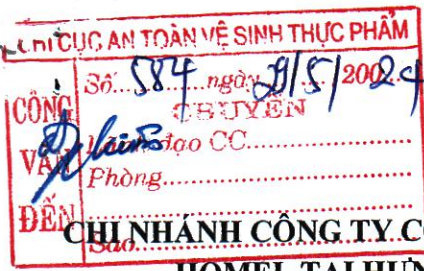 CHI CỤC AN TOÀN VỆ SINH THỰC PHẨM
CÔNG VĂN ĐẾN
Số 584 ngày 29/5/2024
CHUYỂN
Lãnh đạo CC
Phòng
Sao
CHI NHÁNH CÔNG TY C